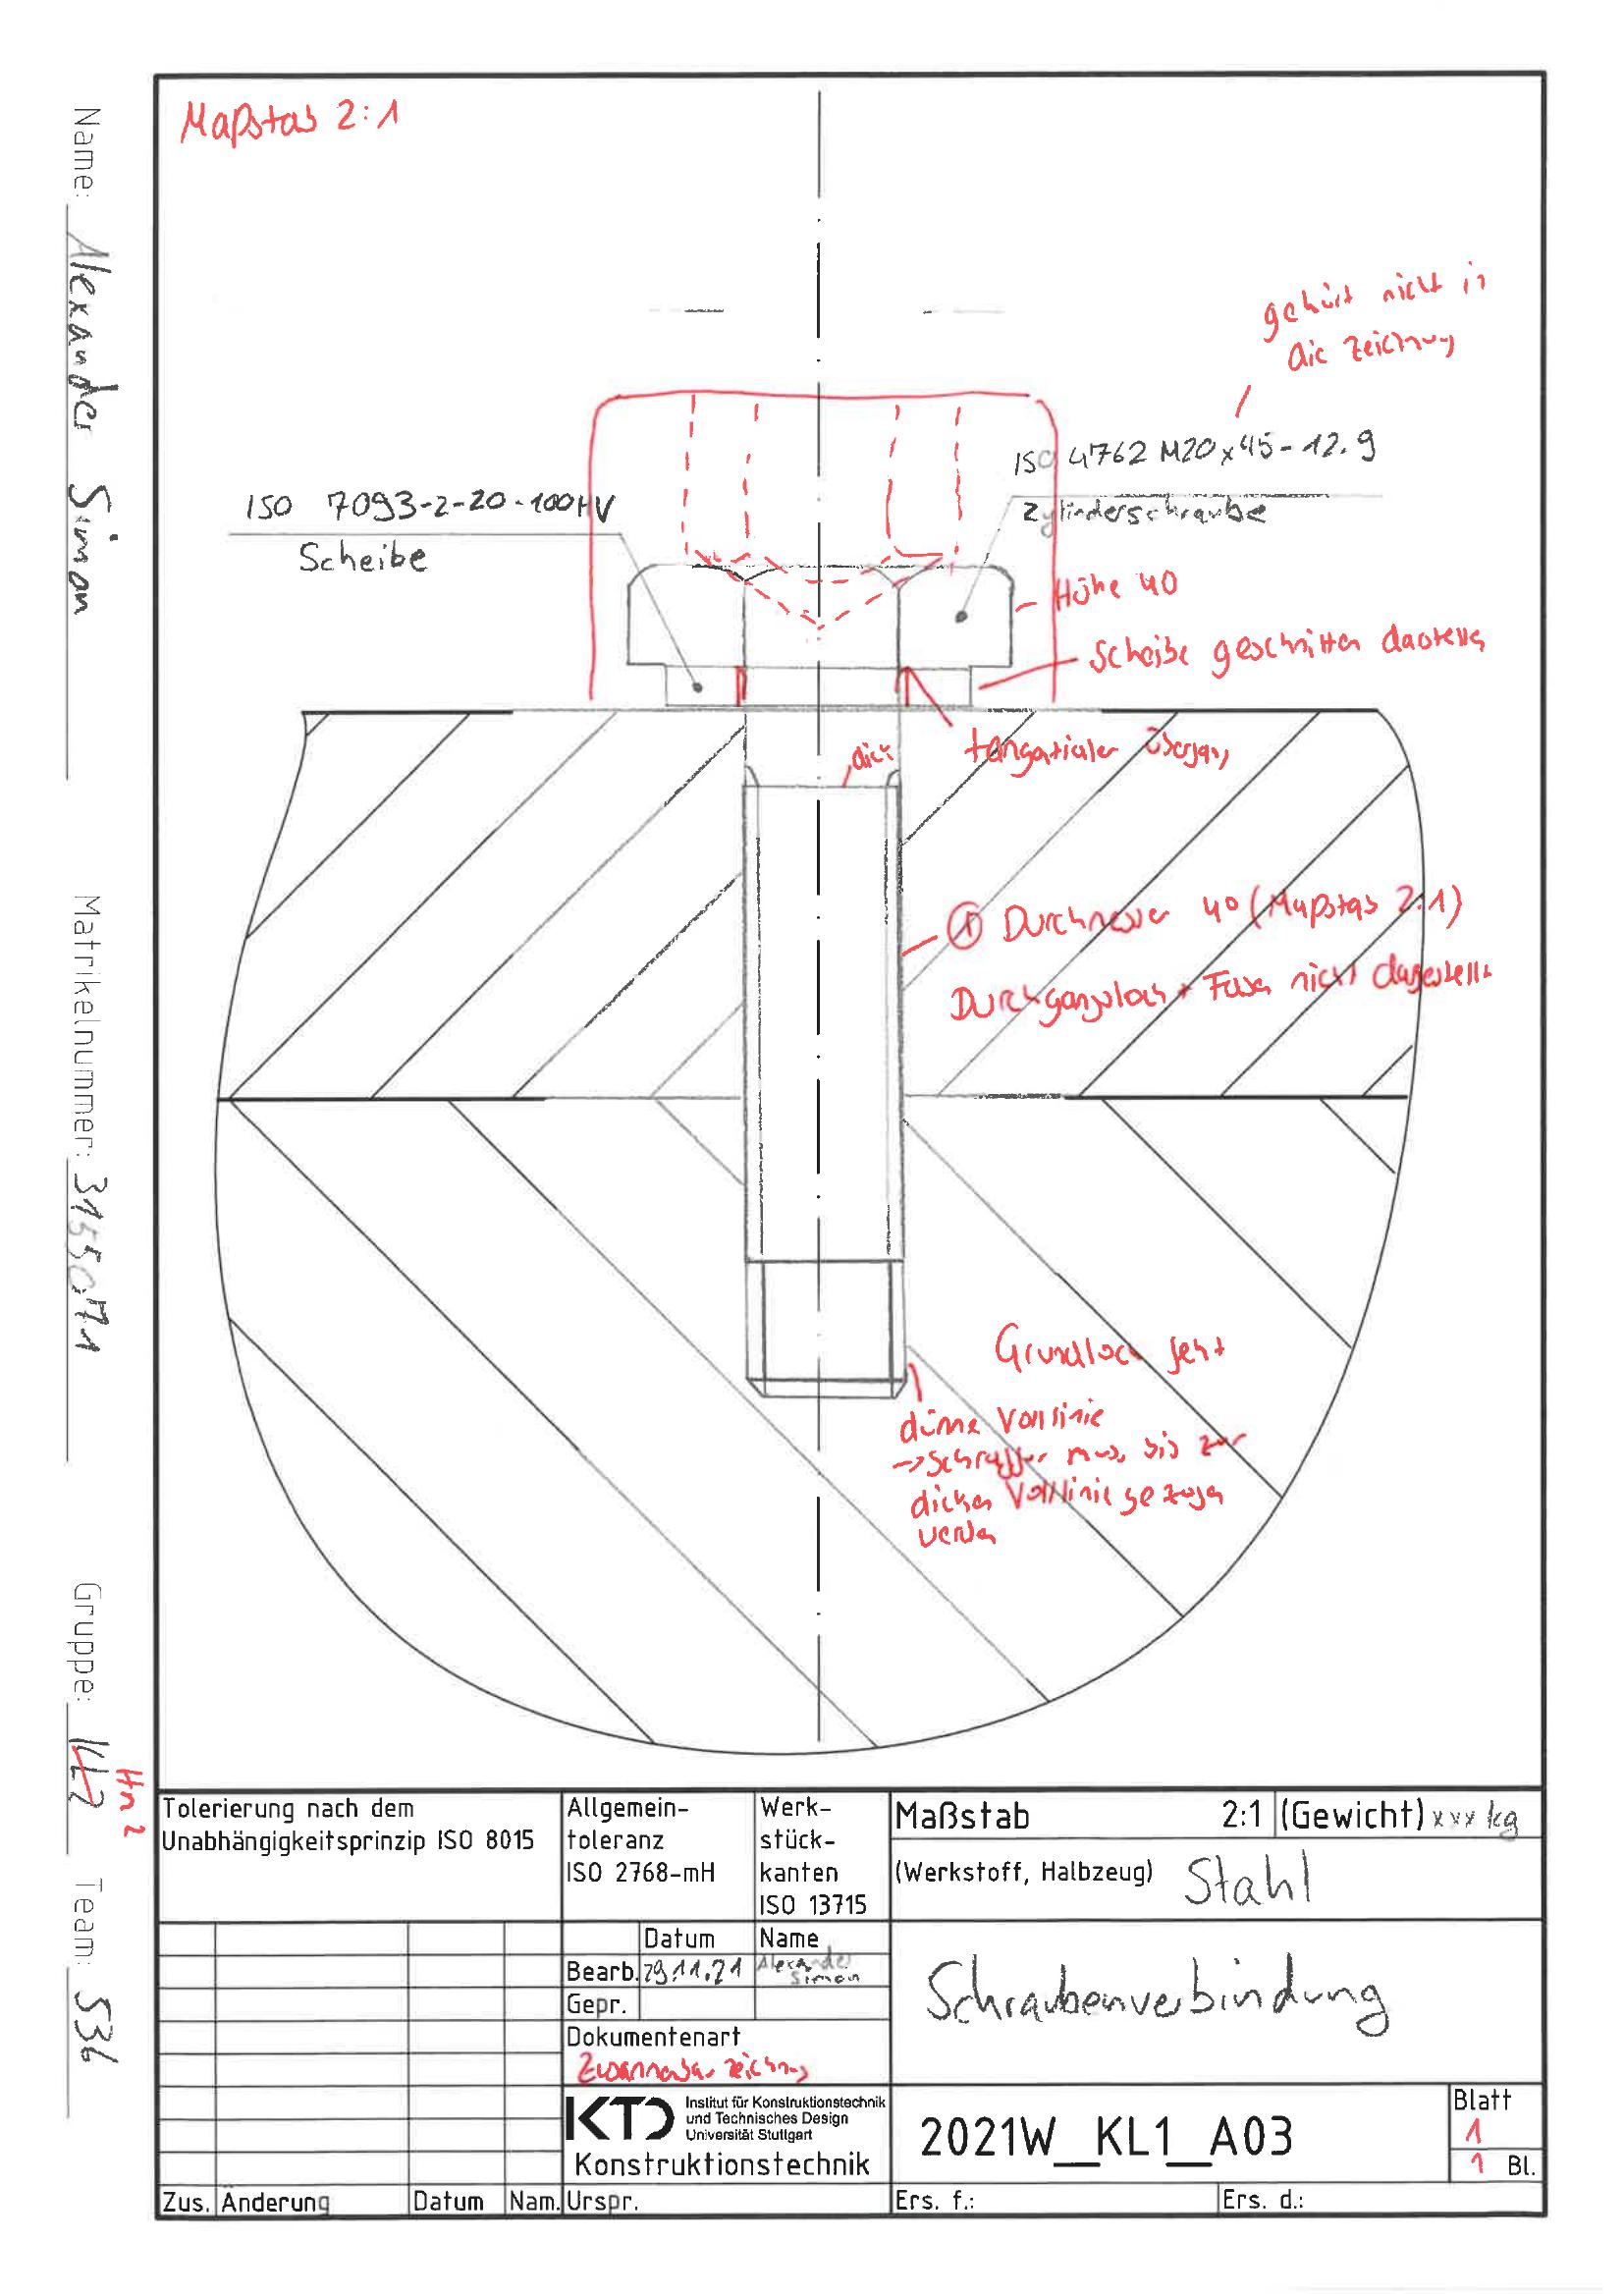 Maßstab 2:1
gehört nicht in
die Zeichnung
ISO 4762 M20x45-12.9
Zylinderschraube
ISO 7093-2-20-100HV
Scheibe
Höhe 40
Scheibe geschnitten darstellen
tangentialer Übergang
dick
① Durchmesser 40 (Maßstab 2:1)
Durchgangsloch + Fase nicht dargestellt
Grundloch fehlt
dünne Volllinie
→ Schraffur muss bis zur
dicken Volllinie gezogen
werden
Name: Alexander Simon
Matrikelnummer: 3155071
Gruppe: KL2
Hn 2
Team: 536
Tolerierung nach dem
Unabhängigkeitsprinzip ISO 8015
Allgemein-
toleranz
ISO 2768-mH
Werk-
stück-
kanten
ISO 13715
Maßstab 2:1 (Gewicht) xxx kg
(Werkstoff, Halbzeug) Stahl
Datum Name
Bearb. 29.11.21 Alexander
Simon
Gepr.
Dokumentenart
Zusammenbauzeichnung
Schraubenverbindung
KTD Institut für Konstruktionstechnik
und Technisches Design
Universität Stuttgart
Konstruktionstechnik
2021W_KL1_A03
Blatt
1
1 Bl.
Zus. Änderung Datum Nam. Urspr. Ers. f.: Ers. d.: